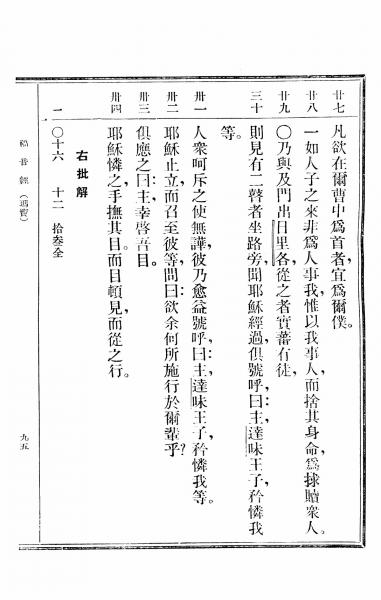 廿七 凡欲在爾曹中爲首者，宜爲爾僕。
廿八 一如人子之來非爲人事我惟以我事人，而捨其身命，爲捄贖衆人。
廿九 〇乃與及門出日里各，從之者實蕃有徒，
三十 則見有二瞽者坐路旁，聞耶穌經過，俱號呼，曰：主，達味王子，矜憐我
等。
卅一 人衆呵斥之使無譁，彼乃愈益號呼，曰：主，達味王子，矜憐我等。
卅二 耶穌止立，而召至彼等，問曰：欲余何所施行於爾輩乎？
卅三 俱應之曰：主，幸啓吾目。
卅四 耶穌憐之，手撫其目。而目頓見，而從之行。
右批解
一 〇十六 十二 拾叁全
福音經（瑪竇）
九五